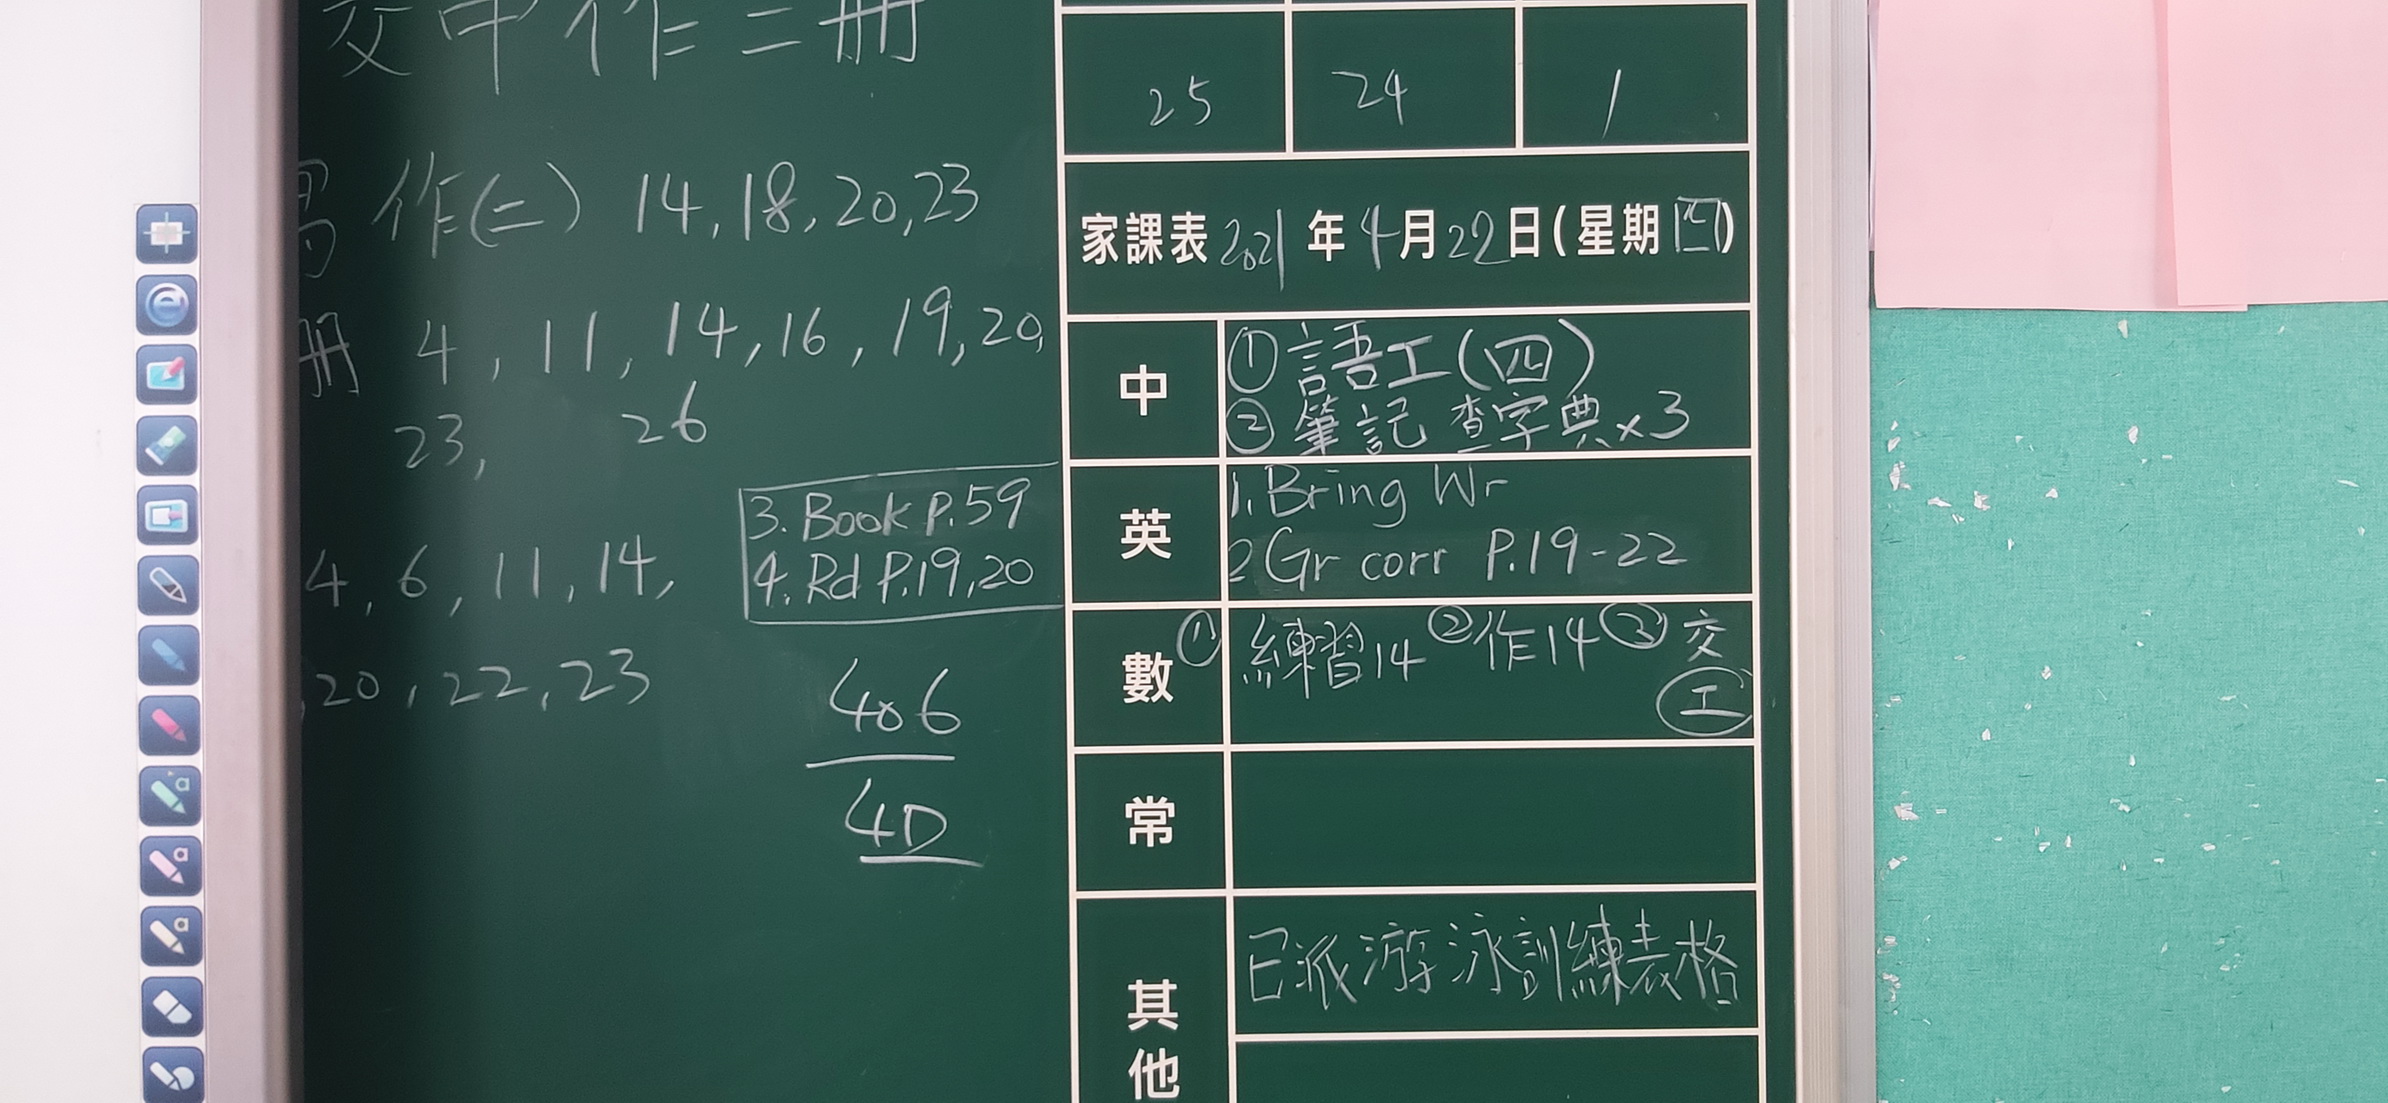 交中作二冊
寫作(二) 14, 18, 20, 23
冊 4, 11, 14, 16, 19, 20,
23, 26
4, 6, 11, 14,
, 20, 22, 23
3. Book P.59
4. Rd P.19,20
406
4D
25 24 1
家課表 2021 年 4 月 22 日(星期四)
中
① 語工(四)
② 筆記 查字典×3
英
1. Bring Wr
2 Gr corr P.19-22
數
① 練習14 ②作14 ③ 交
工
常
其他
已派游泳訓練表格